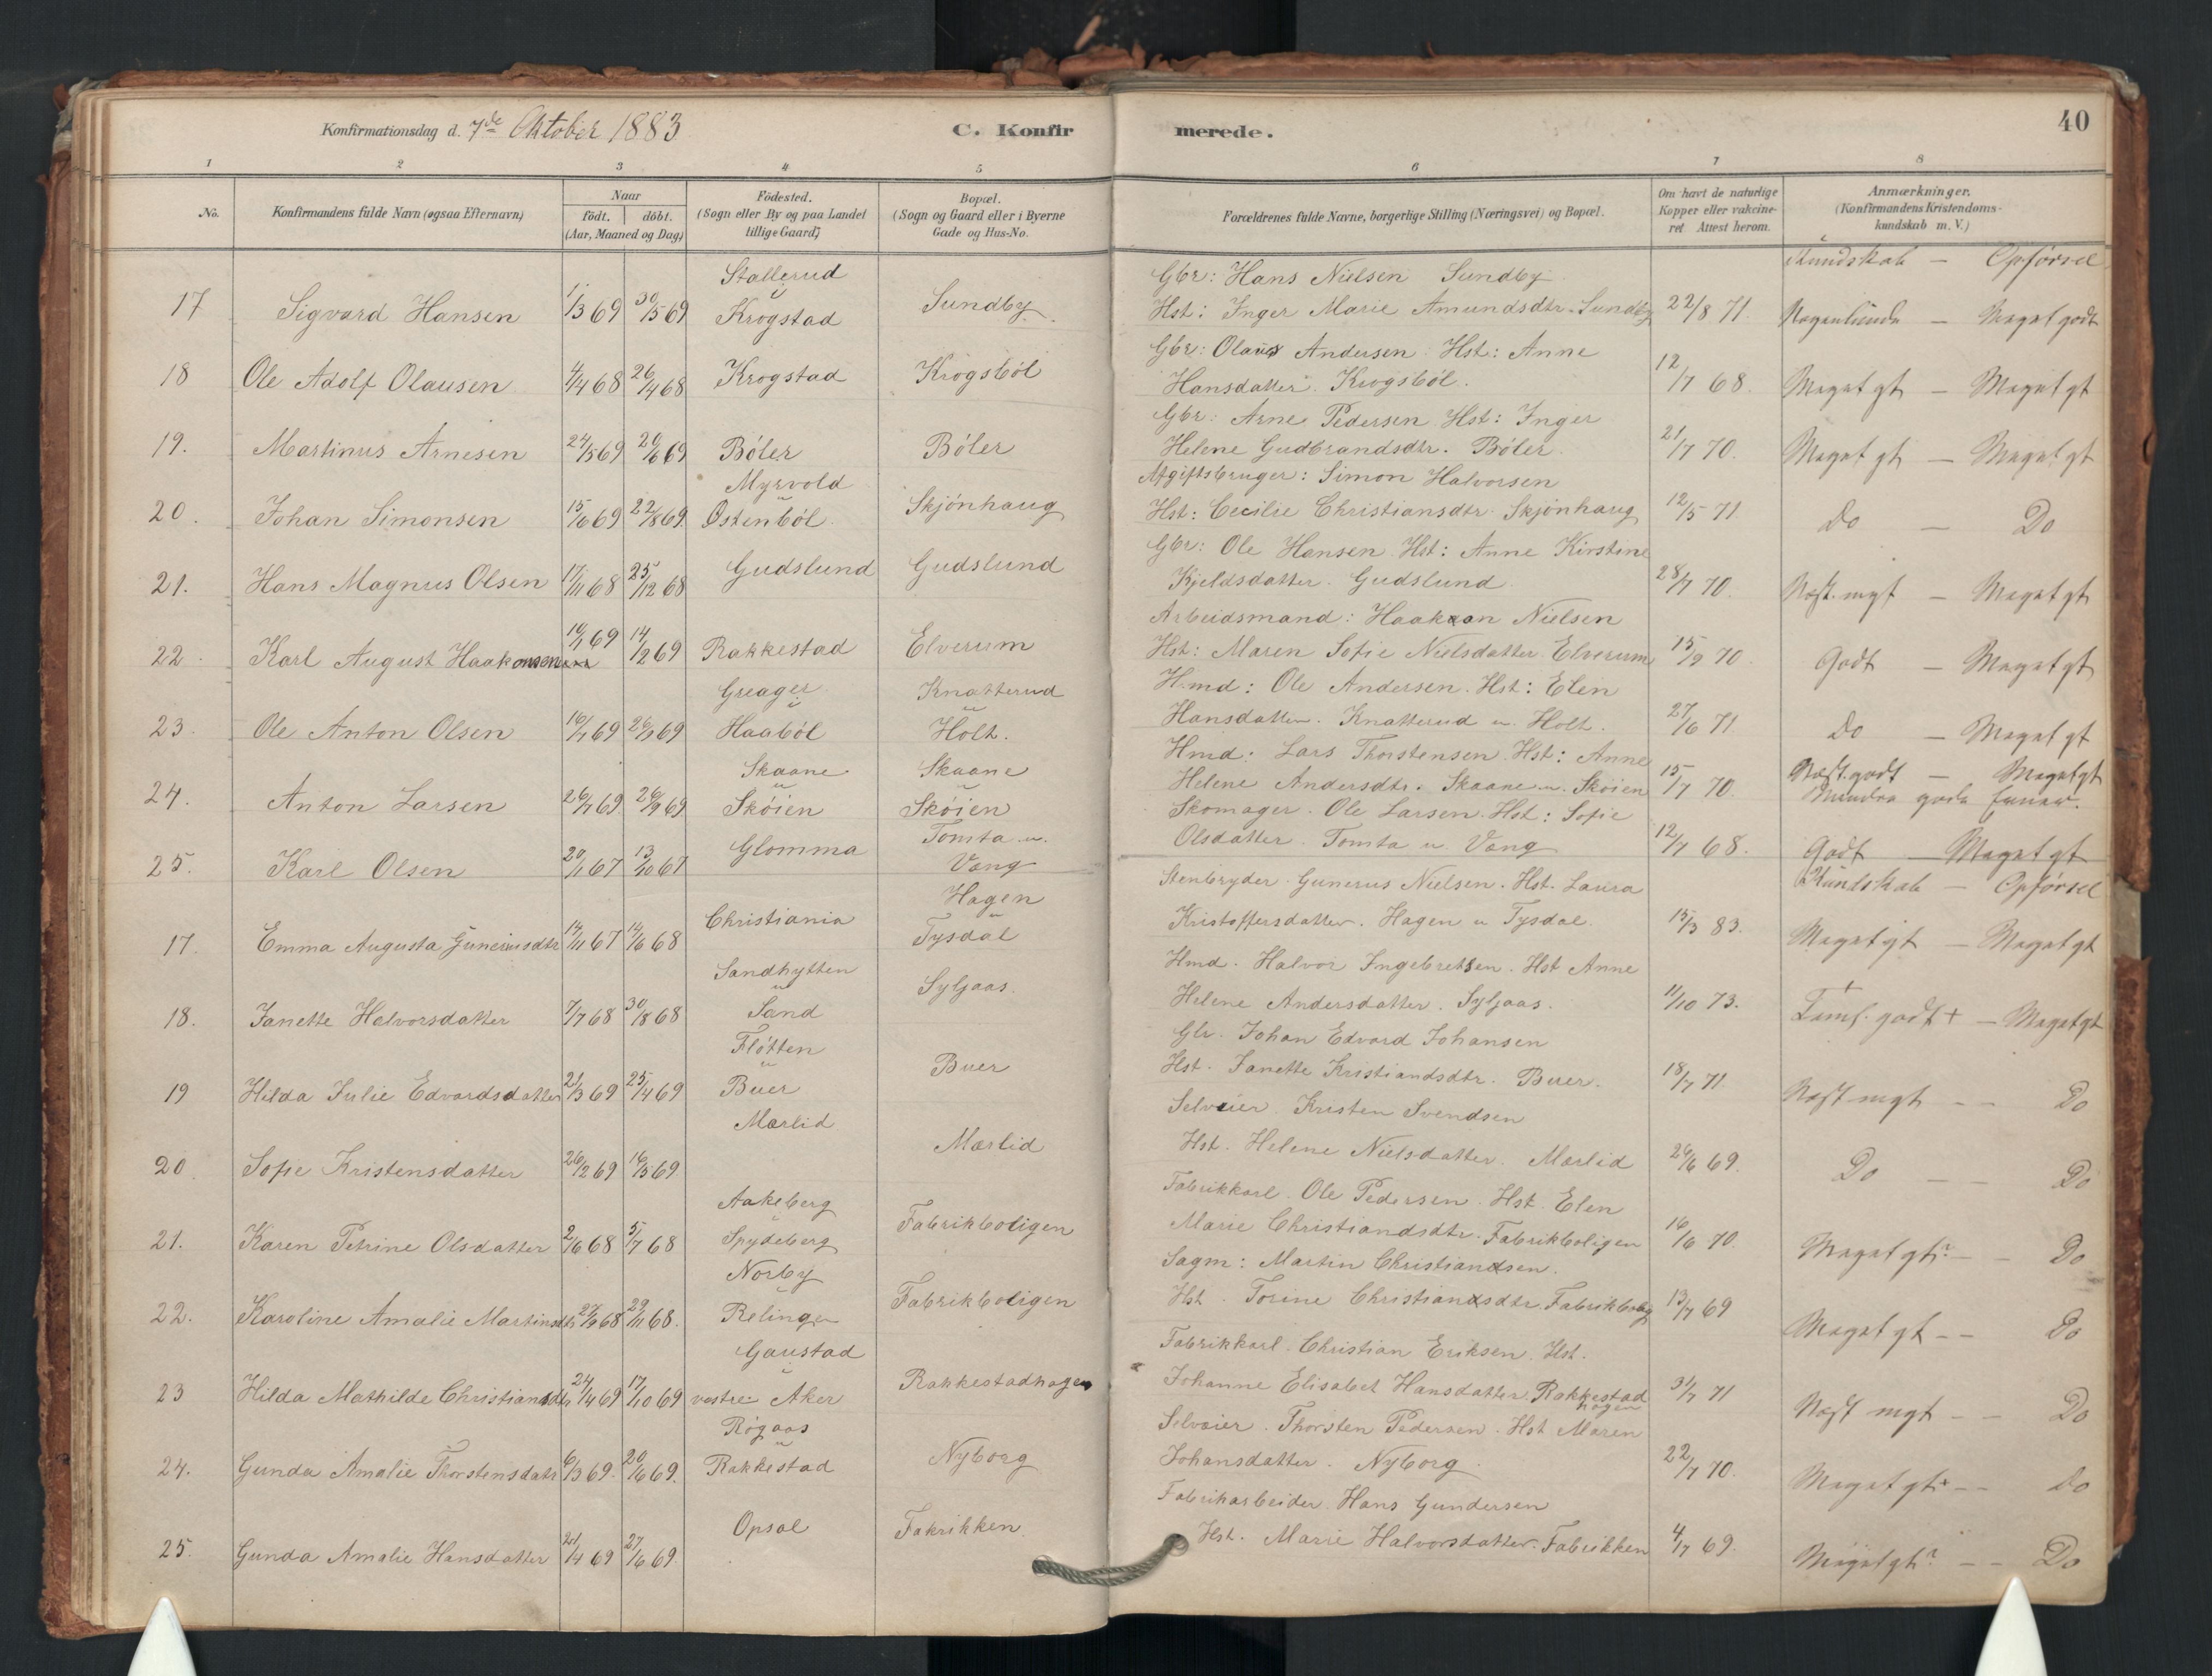 Konfirmationsdag d. 7de Oktober 1883
C. Konfirmerede.
40
1 2 3 4 5 6 7 8
No.
Konfirmandens fulde Navn (ogsaa Efternavn)
Naar
født. døbt.
(Aar, Maaned og Dag)
Födested.
(Sogn eller By og paa Landet
tillige Gaard)
Bopæl.
(Sogn og Gaard eller i Byerne
Gade og Hus-No.
Forældrenes fulde Navne, borgerlige Stilling (Næringsvei) og Bopæl.
Om havt de naturlige
Kopper eller vakcine-
ret Attest herom.
Anmærkninger.
(Konfirmandens Kristendoms-
kundskab m. V.)
Kundskab – Opførsel
17 Sigvard Hansen 1/3 69 30/5 69 Stallerud u Krogstad Sundby
Gbr: Hans Nielsen Sundby
Hst: Inger Marie Amundsdtr. Sundby 22/8 71. Nogenlunde – Meget godt
18 Ole Adolf Olausen 4/4 68 26/4 68 Krogstad Krogsböl
Gbr: Olaus Andersen Hst: Anne
Hansdatter. Krogsböl. 12/7 68. Meget gt – Meget gt
19. Martinus Arnesen 24/5 69 20/6 69 Böler Böler
Gbr: Arne Pedersen Hst: Inger
Helene Gudbrandsdtr. Böler. 21/7 70. Meget gt – Meget gt
20. Johan Simonsen 15/6 69 22/8 69 Myrvold u Østenböl Skjönhaug
Afgiftsbruger: Simon Halvorsen
Hst: Cecilie Christiansdtr Skjönhaug 12/5 71 Do – Do
21. Hans Magnus Olsen 17/11 68 25/12 68 Gudslund Gudslund
Gbr: Ole Hansen. Hst: Anne Kirstine
Kjeldsdatter. Gudslund. 28/7 70. Næst. mgt – Meget gt
22. Karl August Haakonsen 10/1 69 14/2 69 Rakkestad Elverum
Arbeidsmand: Haakon Nielsen
Hst: Maren Sofie Nielsdatter Elverum 15/9 70. Godt – Meget gt
23. Ole Anton Olsen 16/1 69 26/3 69 Greager u Haaböl Knatterud u Holt.
Hmd: Ole Andersen. Hst: Elen
Hansdatter. Knatterud u. Holt. 27/6 71 Do – Meget gt
24. Anton Larsen 26/7 69 26/9 69 Skaane u Sköien Skaane u Sköien
Hmd: Lars Thorstensen Hst: Anne
Helene Andersdtr. Skaane u. Sköien 15/7 70. Næst. godt – Meget gt
Mindre gode Evner.
25. Karl Olsen 20/1 67 13/10 67 Glomma Tomta u. Vang
Skomager. Ole Larsen. Hst: Sofie
Olsdatter. Tomta u Vang 12/7 68. Godt – Meget gt
Kundskab – Opførsel
17. Emma Augusta Gunerusdtr 14/11 67 14/6 68 Christiania Hagen u Tysdal
Stenbryder Gunerus Nielsen. Hst. Laura
Kristoffersdatter. Hagen u Tysdal. 15/3 83. Meget gt – Meget gt
18. Janette Halvorsdatter 7/7 68 30/8 68 Sandhytten u Sand Syljaas.
Hmd. Halvor Ingebretsen. Hst Anne
Helene Andersdatter. Syljaas. 11/10 73. Teml. godt + – Meget gt
19 Hilda Julie Edvardsdatter 21/3 69 25/4 69 Fløtten u Buer Buer
Gbr. Johan Edvard Johansen
Hst. Janette Kristiandsdtr. Buer. 18/7 71. Næst mgt – – Do
20 Sofie Kristensdatter 26/2 69 16/5 69 Mørlid Mørlid
Selveier. Kristen Svendsen
Hst. Helene Nielsdatter. Mørlid 26/6 69. Do – – Do
21. Karen Petrine Olsdatter 2/6 68 5/7 68 Aakeberg u Spydeberg Fabrikboligen
Fabrikkarl. Ole Pedersen. Hst. Elen
Marie Christiandsdtr. Fabrikboligen 16/6 70. Meget gt? – – Do
22. Karoline Amalie Martinsdtr 27/9 68 29/11 68. Norby u Relinge Fabrikboligen
Sagm: Martin Christiansen.
Hst. Torine Christiansdtr. Fabrikbolig 13/7 69 Meget gt – – Do
23 Hilda Mathilde Christiansdtr 24/4 69 17/10 69 Gaustad i vestre Aker Rakkestadhagen
Fabrikkarl. Christian Eriksen. Hst.
Johanne Elisabet Hansdatter Rakkestad
hagen 31/7 71 Næst mgt – – Do
24. Gunda Amalie Thorstensdatr 6/3 69. 20/6 69. Rögaas u Rakkestad Nyborg
Selveier. Thorsten Pedersen. Hst Maren
Johansdatter. Nyborg. 22/7 70. Meget gt + – – Do
25. Gunda Amalie Hansdatter 21/4 69 27/6 69. Opsal Fabrikken.
Fabrikarbeider. Hans Gundersen
Hst. Marie Halvorsdatter. Fabrikken 4/7 69. Meget gt? – – Do